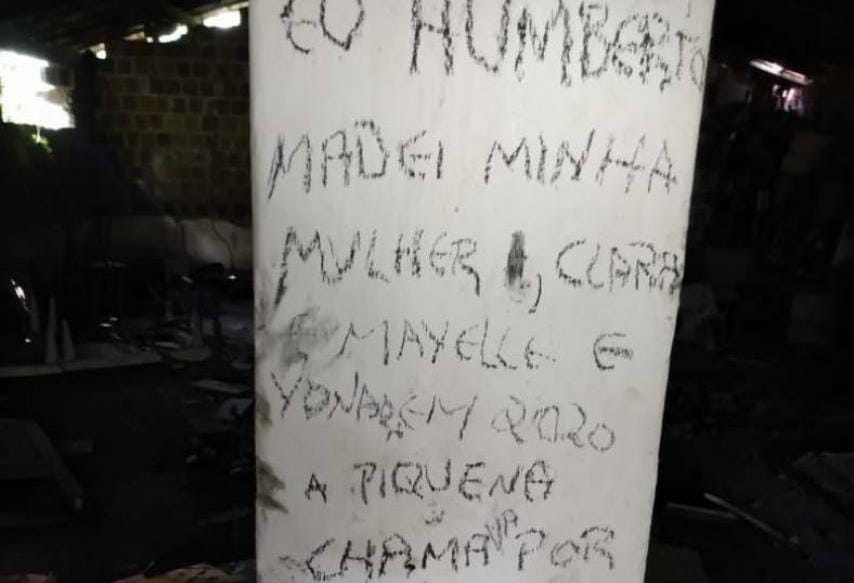 EU HUMBERTO
MADEI MINHA
MULHER, CLARA
E MAYELLE E
YONARA EM 2020
A PIQUENA
CHAMAVA POR